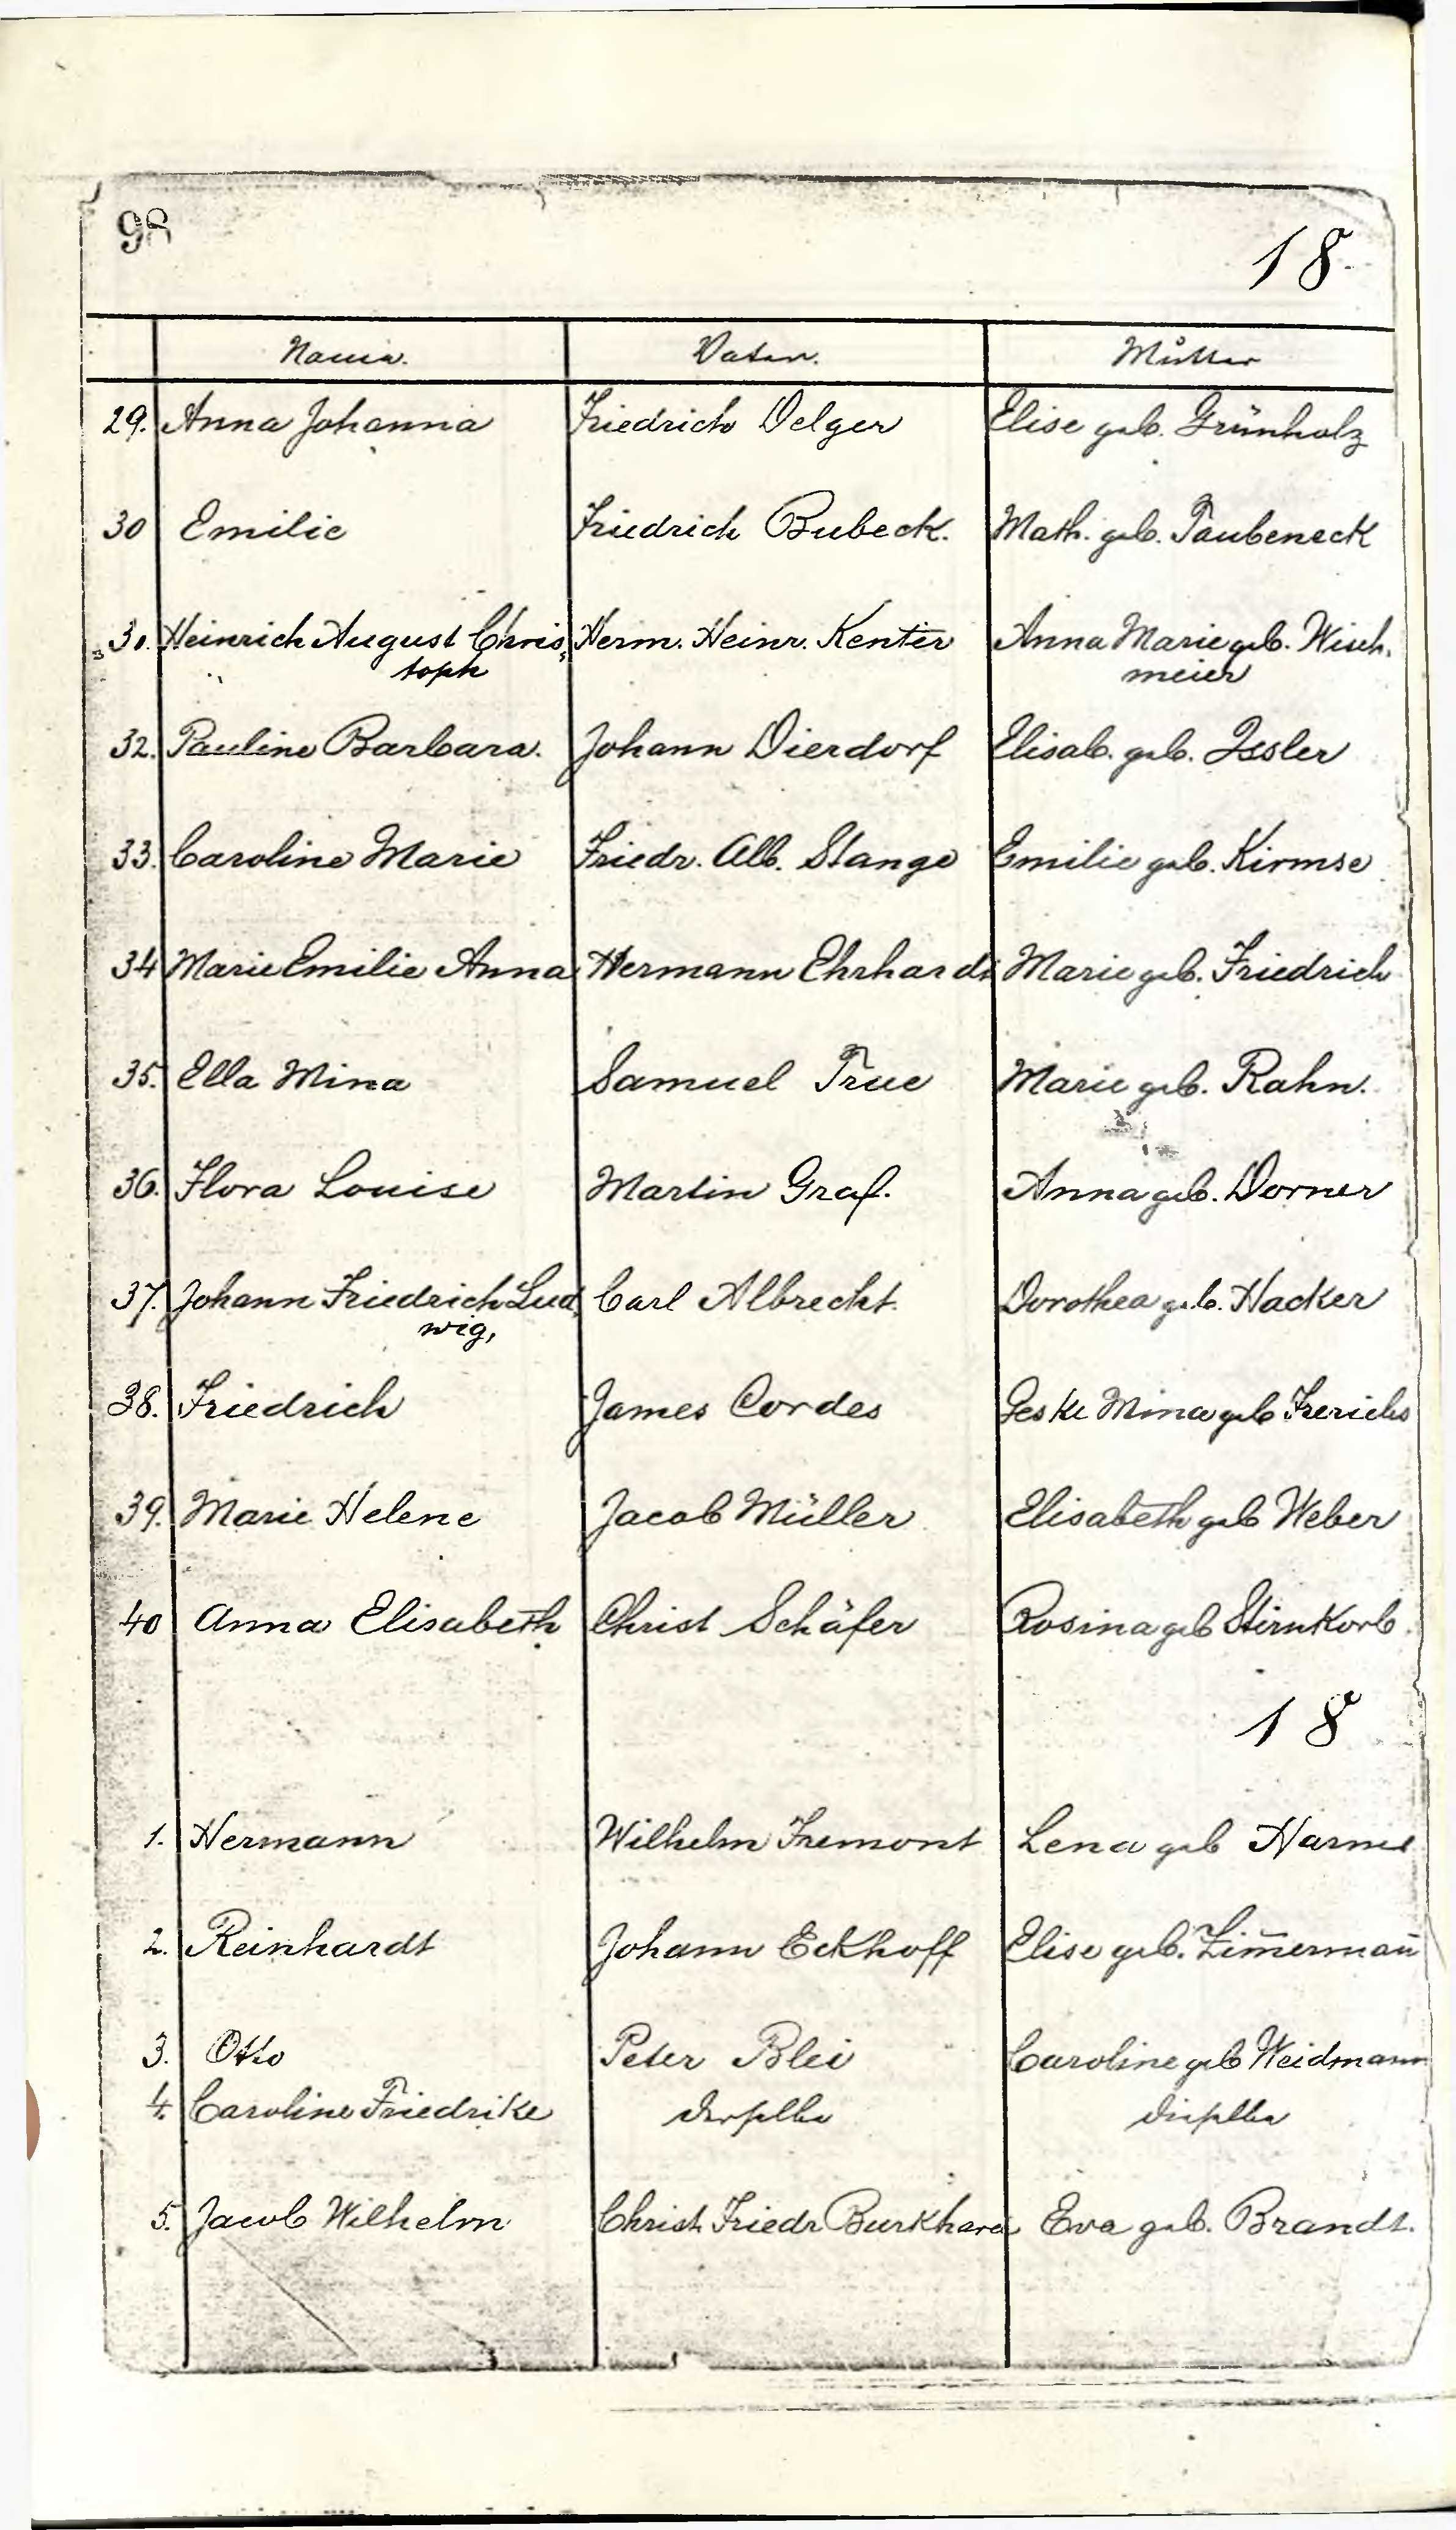 98
18
Name. Vater. Mutter
29. Anna Johanna Friedrich Oelger Elise geb. Grünholz
30 Emilie Friedrich Bubeck. Math. geb. Taubeneck
31. Heinrich August Chris- Herm. Heinr. Kenter Anna Marie geb. Wisch-
toph meier
32. Pauline Barbara. Johann Dierdorf Elisab. geb. Issler
33. Caroline Marie Friedr. Alb. Stange Emilie geb. Kirmse
34 Marie Emilie Anna Hermann Ehrhardt Marie geb. Friedrich
35. Ella Mina Samuel True Marie geb. Rahn.
36. Flora Louise Martin Graf. Anna geb. Dorner
37. Johann Friedrich Lud- Carl Albrecht. Dorothea geb. Hacker
wig,
38. Friedrich James Cordes Geske Mina geb Frerichs
39. Marie Helene Jacob Müller Elisabeth geb Weber
40 Anna Elisabeth Christ Schäfer Rosina geb Stirnkorb.
18
1. Hermann Wilhelm Fremont Lena geb Harms
2. Reinhardt Johann Eckhoff Elise geb. Zim̄erman̄
3. Otto Peter Blei Caroline geb Weidmann
4. Caroline Friedrike derselbe dieselbe
5. Jacob Wilhelm Christ. Friedr Burkhard Eva geb. Brandt.